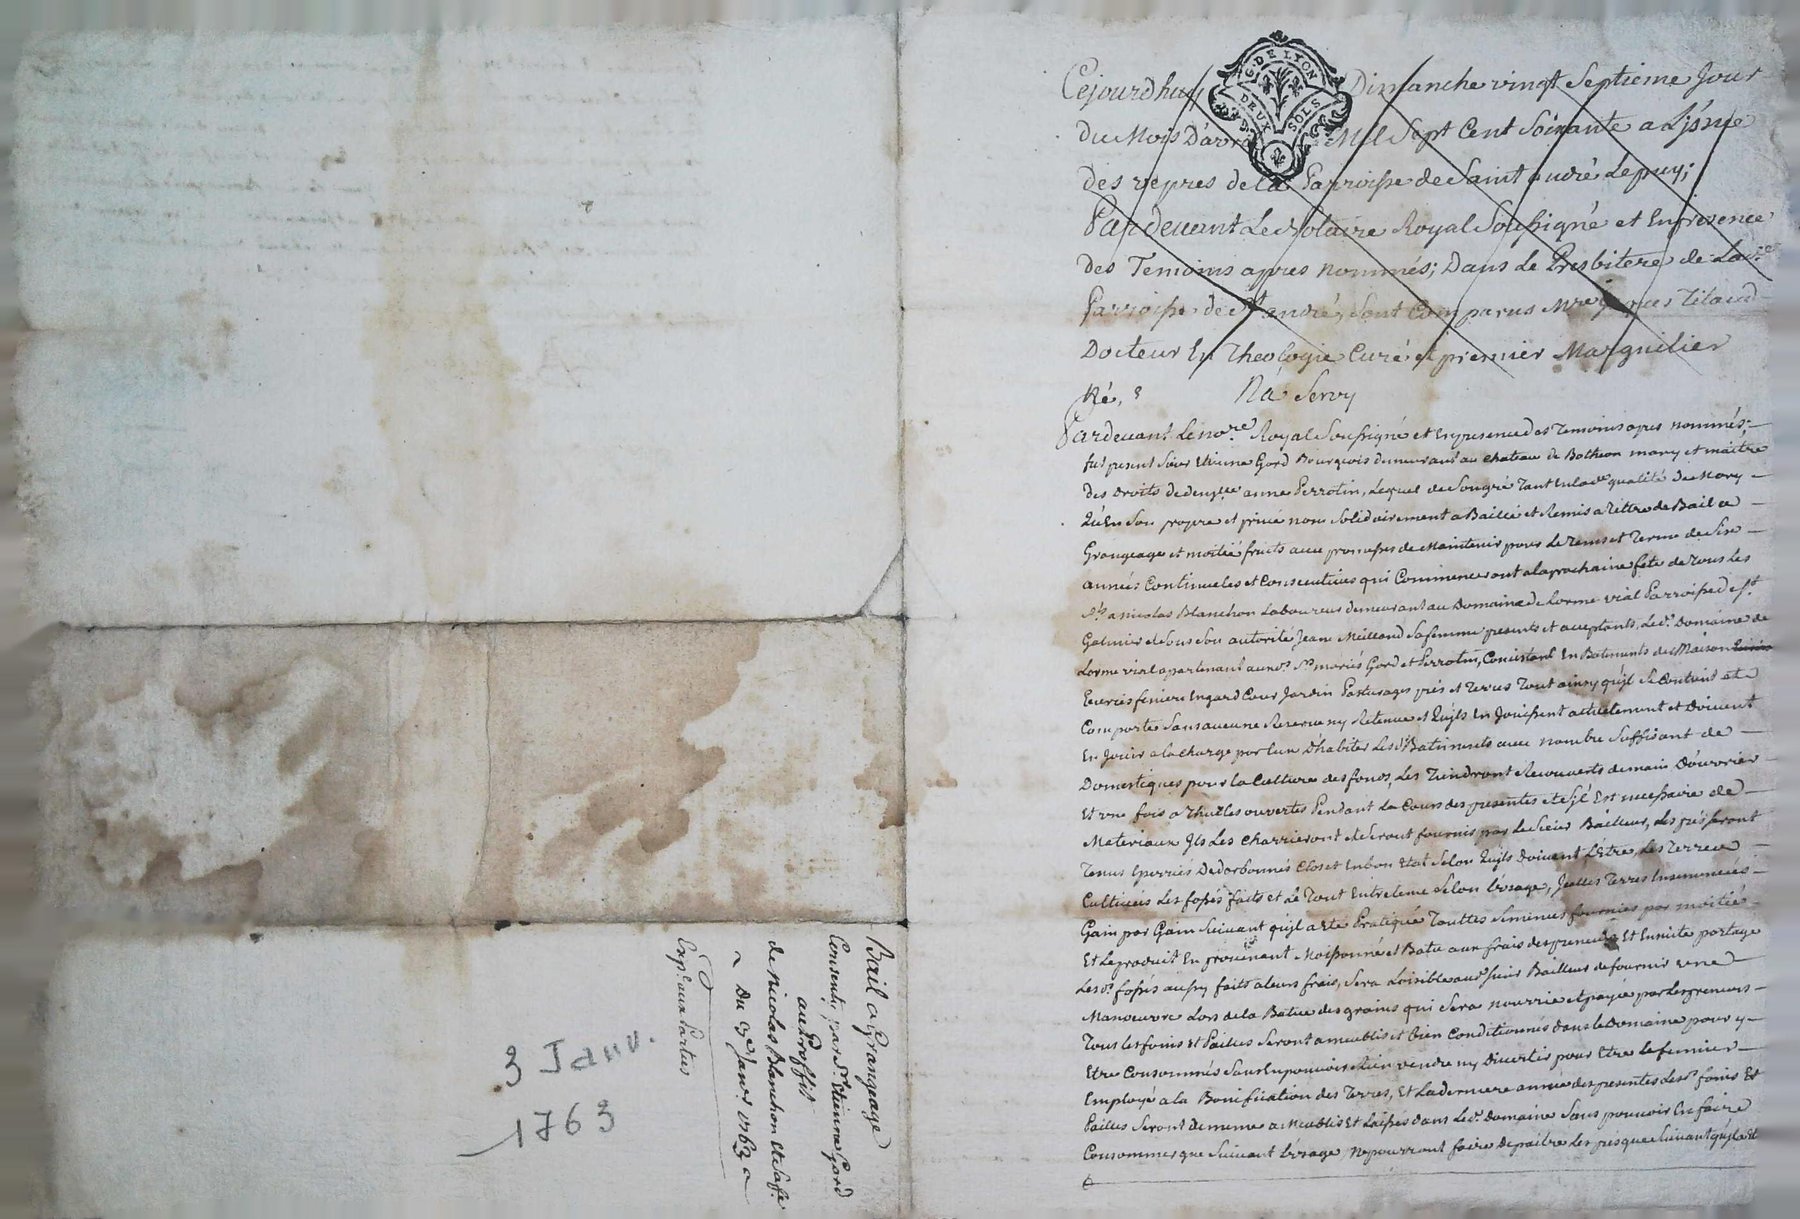 Cejourdhuy Dimanche vingt Septieme Jour
G. DE LYON
DEUX SOLS
du Mois Mil Sept Cent Soixante a L'jssue
des vepres de la Parroisse de Saint andré Lepuy;
Pardevant Le Notaire Royal Soussigné et En presence
des Temoins apres nommés; Dans Le Presbitere de La
Parroisse de St andré, Sont Comparus Mre
Docteur En Theologie Curé et premier Marguilier
Na Servy
Pardevant Le nore. Royal Soussigné et En presence des Temoins apres nommés;
fut present Sieur Etienne Gord Bourgeois demeurant au chateau de Botheon mary et maitre
des Droits de anne Perrotin, Lequel de Son gré Tant En qualité de Mary
Qu'En Son propre et privé nom Solidairement a Baillé et Remis a tittre de Bail a
Grangeage et moitié fruits avec promesses de Maintenir pour Le Tems et Terme de Six
années Continueles et Consecutives qui Commenceront a la prochaine fete de Tous Les
Sts a nicolas Blanchon Laboureur demeurant au Domaine de Lorme vial Parroisse de St
Galmier et de Sous Son autorité Jean Meilland Sa femme presents et acceptants, Le d. Domaine de
Lorme vial apartenant mariés Gord et Perrotin, Consistant En Batiments de Maison
Ecuries feniere Engard Cour Jardin Pasturages prés et Terres Tout ainsy qu'jl Se Contient et Se
Comporte Sans aucune Reserve ny Retenue et Qujls En Jouissent actuelement et Doivent
En Jouir a la charge par Eux D'habiter Les d. Batiments avec nombre Suffisant de
Domestiques pour la Culture des fonds, Les Tiendront Recouverts de main D'ouvrier
Et une fois a Thuilles ouvertes Pendant Le Cours des presentes et S'jl Est necessaire de
Materiaux Jls Les Charrieront et Seront fournis par Le Sieur Bailleur, Les prés Seront
Tenus Clos et En bon Etat Selon Qujls Doivent L'Etre, Les Terres
Cultivées Les fossés faits et Le Tout Entretenu Selon L'usage,
Gain par Gain Suivant qu'jl a eté Pratiqué Touttes Semences fournies par moitié
Et Le produit En provenant Moissonné et Batu aux frais des preneurs Et Ensuite partagé
Les d. fossés aussy faits a leurs frais, Sera Loisible Sieur Bailleur de fournir une
Manoeuvre Lors de la Batue des grains qui Sera nourrie et payée par Les preneurs
Tous Les foins et Pailles Seront ameublis et bien Conditionnés dans Le Domaine pour y
Etre Consommés Sans En pouvoir Rien vendre ny Divertir pour Etre Le fumier
Employé a la Bonification des Terres, Et La derniere année des presentes Les d. foins Et
Pailles Seront de meme ameublis Et Laissés dans Le d. Domaine Sans pouvoir En faire
Consommer que Suivant L'usage, ne pourront faire Depaitre Les prés que Suivant
Bail a Grangeage
Consenty par Sr. Etienne Gord
au Proffit
de Nicolas Blanchon et Sa fe.
Du 3e Janv. 1763
Expe. aux Parties
3 Janv.
1763